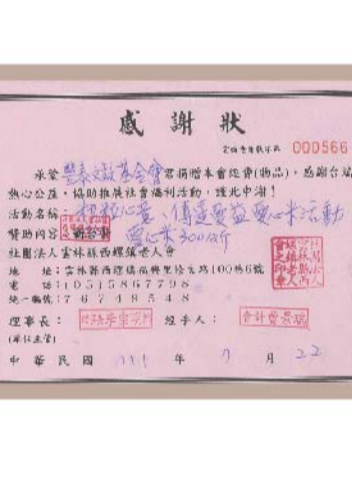 感謝狀
000566
承蒙豐泰文教基金會君捐贈本會經費(物品),感謝台端
熱心公益,協助推展社會福利活動,謹此申謝!
活動名稱:粒粒心意、傳遞愛益愛心米活動
贊助內容:愛心米300台斤
社團法人雲林縣西螺鎮老人會
地 址:雲林縣西螺鎮福興里修文路100巷6號
電 話:(05)5867798
統一編號:76749548
理事長: 經手人:
(單位主管)
中華民國 111 年 7 月 22